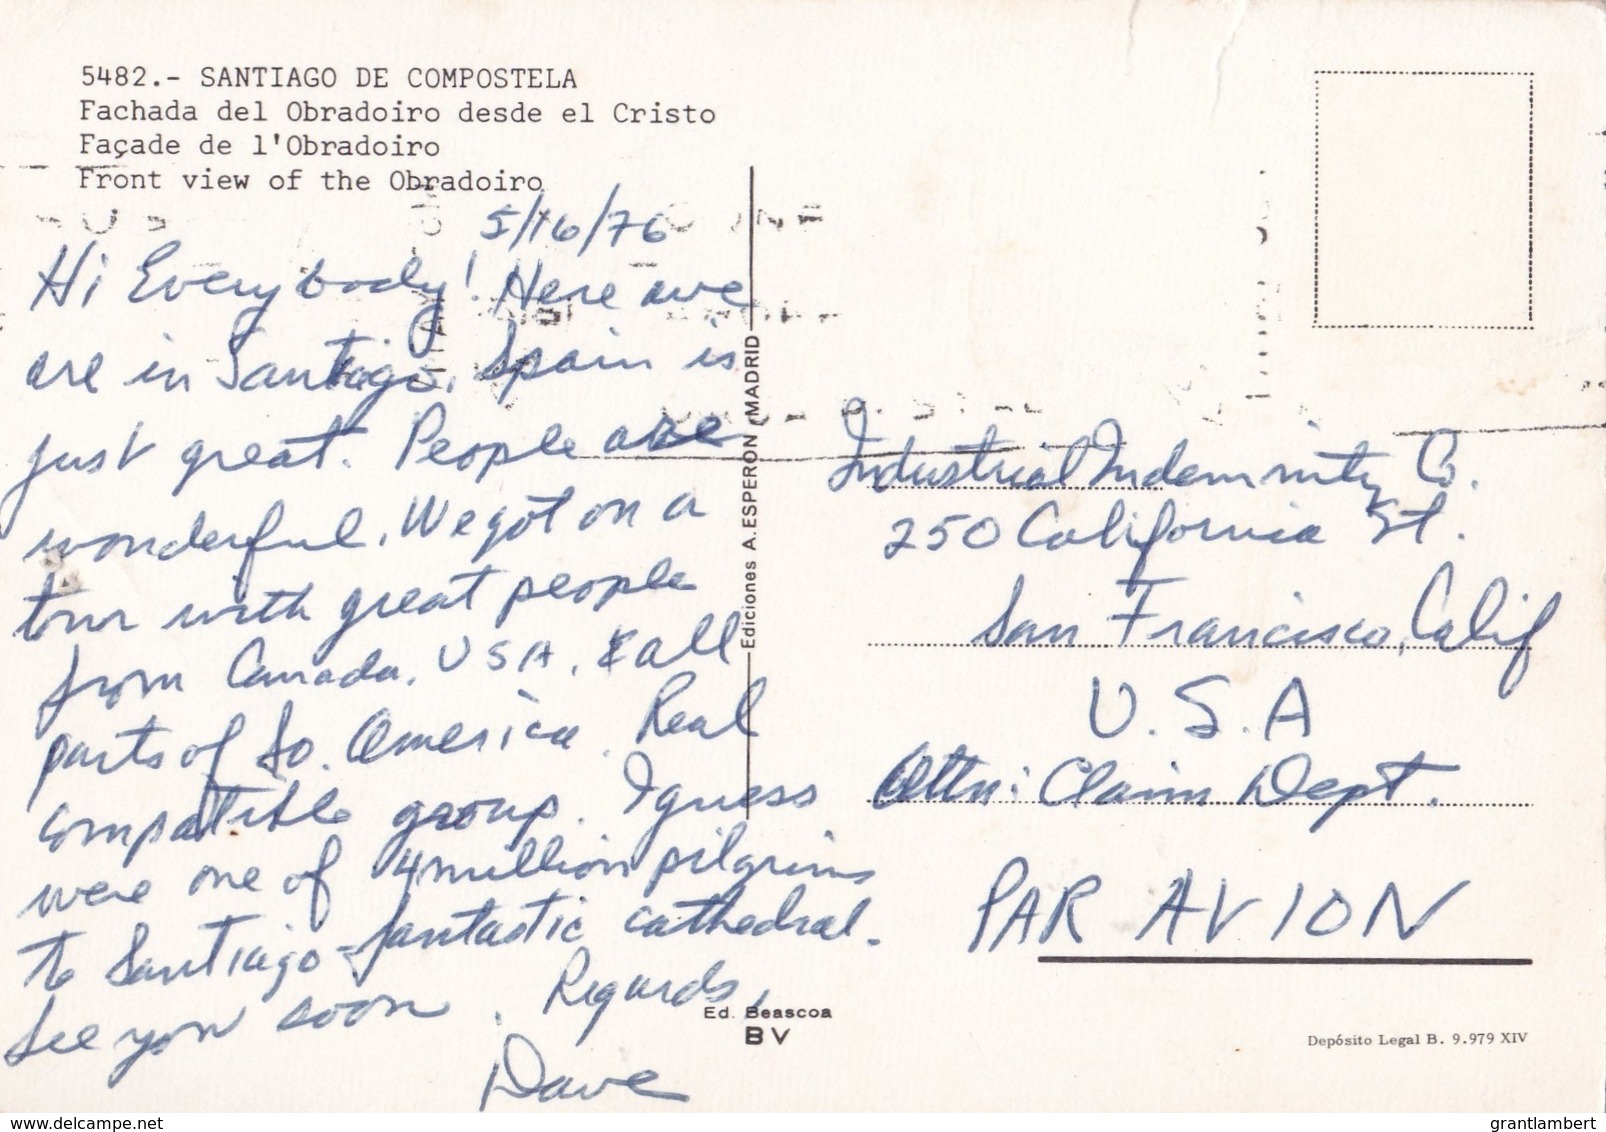 5482.- SANTIAGO DE COMPOSTELA
Fachada del Obradoiro desde el Cristo
Façade de l'Obradoiro
Front view of the Obradoiro
5/16/76
Hi Everybody! Here we
are in Santiago. Spain is
just great. People are
wonderful. We got on a
tour with great people
from Canada, USA, & all
parts of So. America. Real
compatible group. I guess
were one of 4 million pilgrims
to Santiago - fantastic cathedral.
See you soon. Regards,
Dave
Ediciones A. ESPERON - MADRID
Industrial Indemnity Co.
250 California St.
San Francisco, Calif
U.S.A
Attn: Claim Dept.
PAR AVION
Ed. Beascoa
BV
Depósito Legal B. 9.979 XIV
www.delcampe.net
grantlambert